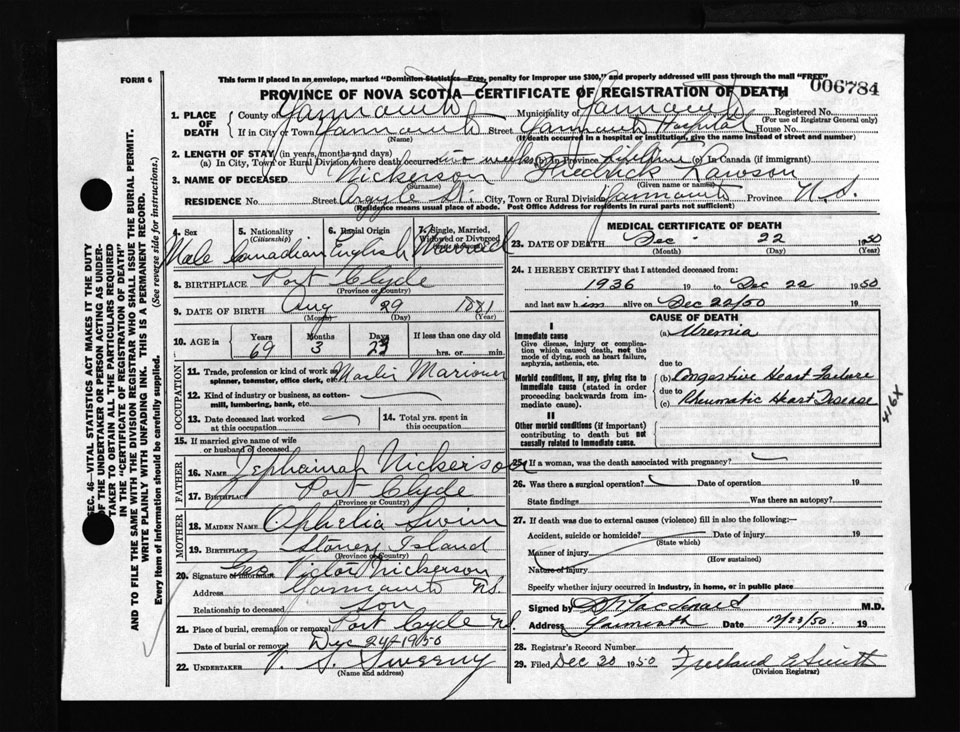 FORM 6
This form if placed in an envelope, marked "Dominion Statistics—Free, penalty for improper use $300," and properly addressed will pass through the mail "FREE"
006784
PROVINCE OF NOVA SCOTIA—CERTIFICATE OF REGISTRATION OF DEATH
1. PLACE OF DEATH
County of Yarmouth Municipality of Yarmouth Registered No.
(For use of Registrar General only)
If in City or Town Yarmouth Street Yarmouth Hospital House No.
(Name) (If death occurred in a hospital or institution, give the name instead of street and number)
2. LENGTH OF STAY (in years, months and days)
(a) In City, Town or Rural Division where death occurred two weeks (b) In Province lifetime (c) In Canada (if immigrant)
3. NAME OF DECEASED Nickerson Fredrick Lawson
(Surname) (Given name or names)
RESIDENCE No. Street Argyle St. City, Town or Rural Division Yarmouth Province N.S.
(Residence means usual place of abode. Post Office Address for residents in rural parts not sufficient)
4. Sex 5. Nationality (Citizenship) 6. Racial Origin 7. Single, Married, Widowed or Divorced
Male Canadian English Married
8. BIRTHPLACE Port Clyde
(Province or Country)
9. DATE OF BIRTH Aug 29 1881
(Month) (Day) (Year)
10. AGE in Years Months Days If less than one day old
69 3 23 hrs. or min.
OCCUPATION
11. Trade, profession or kind of work as spinner, teamster, office clerk, etc. Master Mariner
12. Kind of industry or business, as cotton-mill, lumbering, bank, etc.
13. Date deceased last worked at this occupation
14. Total yrs. spent in this occupation
15. If married give name of wife or husband of deceased
FATHER
16. Name Zephaniah Nickerson
17. Birthplace Port Clyde
(Province or Country)
MOTHER
18. MAIDEN NAME Ophelia Swim
19. Birthplace Stoney Island
(Province or Country)
20. Signature of informant Geo Victor Nickerson
Address Yarmouth N.S.
Relationship to deceased Son
21. Place of burial, cremation or removal Port Clyde N.S.
Date of burial or removal Dec 24 1950
22. UNDERTAKER V. S. Sweeny
(Name and address)
MEDICAL CERTIFICATE OF DEATH
23. DATE OF DEATH Dec - 22 1950
(Month) (Day) (Year)
24. I HEREBY CERTIFY that I attended deceased from:
1936 19 to Dec 22 1950
and last saw him alive on Dec 22/50 19
CAUSE OF DEATH
I
Immediate cause (a) Uremia
Give disease, injury or complication which caused death, not the mode of dying, such as heart failure, asphyxia, asthenia, etc.
due to
Morbid conditions, if any, giving rise to immediate cause (stated in order proceeding backwards from immediate cause).
(b) Congestive Heart Failure
due to
(c) Rheumatic Heart Disease
416X
II
Other morbid conditions (if important) contributing to death but not causally related to immediate cause.
25. If a woman, was the death associated with pregnancy?
26. Was there a surgical operation? Date of operation 19
State findings Was there an autopsy?
27. If death was due to external causes (violence) fill in also the following:—
Accident, suicide or homicide? Date of injury 19
(State which)
Manner of injury
(How sustained)
Nature of injury
Specify whether injury occurred in industry, in home, or in public place
Signed by M.D.
Address Yarmouth Date 12/23/50. 19
28. Registrar's Record Number
29. Filed Dec 30 1950 Freeland Smith
(Division Registrar)
SEC. 46—VITAL STATISTICS ACT MAKES IT THE DUTY
OF THE UNDERTAKER OR PERSON ACTING AS UNDER-
TAKER TO OBTAIN ALL THE PARTICULARS REQUIRED
IN THE "CERTIFICATE OF REGISTRATION OF DEATH"
AND TO FILE THE SAME WITH THE DIVISION REGISTRAR WHO SHALL ISSUE THE BURIAL PERMIT.
WRITE PLAINLY WITH UNFADING INK. THIS IS A PERMANENT RECORD.
Every item of information should be carefully supplied. (See reverse side for instructions.)